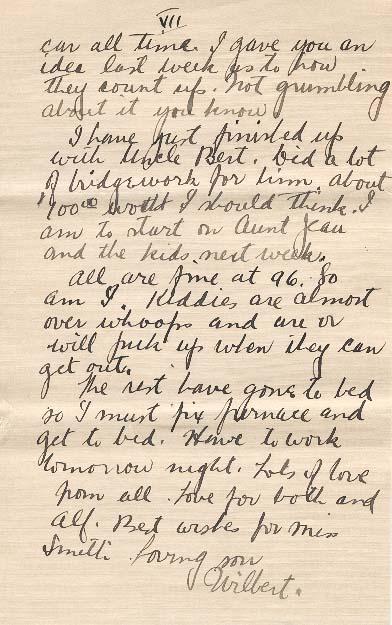 VII
car all time. I gave you an
idea last week as to how
they count up. Not grumbling
about it you know.
I have just finished up
with Uncle Bert. Did a lot
of bridgework for him. about
$100.00 worth I should think. I
am to start on Aunt Jean
and the kids next week.
All are fine at 96. So
am I. Kiddies are almost
over whoops and are or
will pick up when they can
get out.
The rest have gone to bed
so I must fix furnace and
get to bed. Have to work
tomorrow night. Lots of love
from all. Love for both and
Alf. Best wishes for Miss
Smith. Loving son
Wilbert.